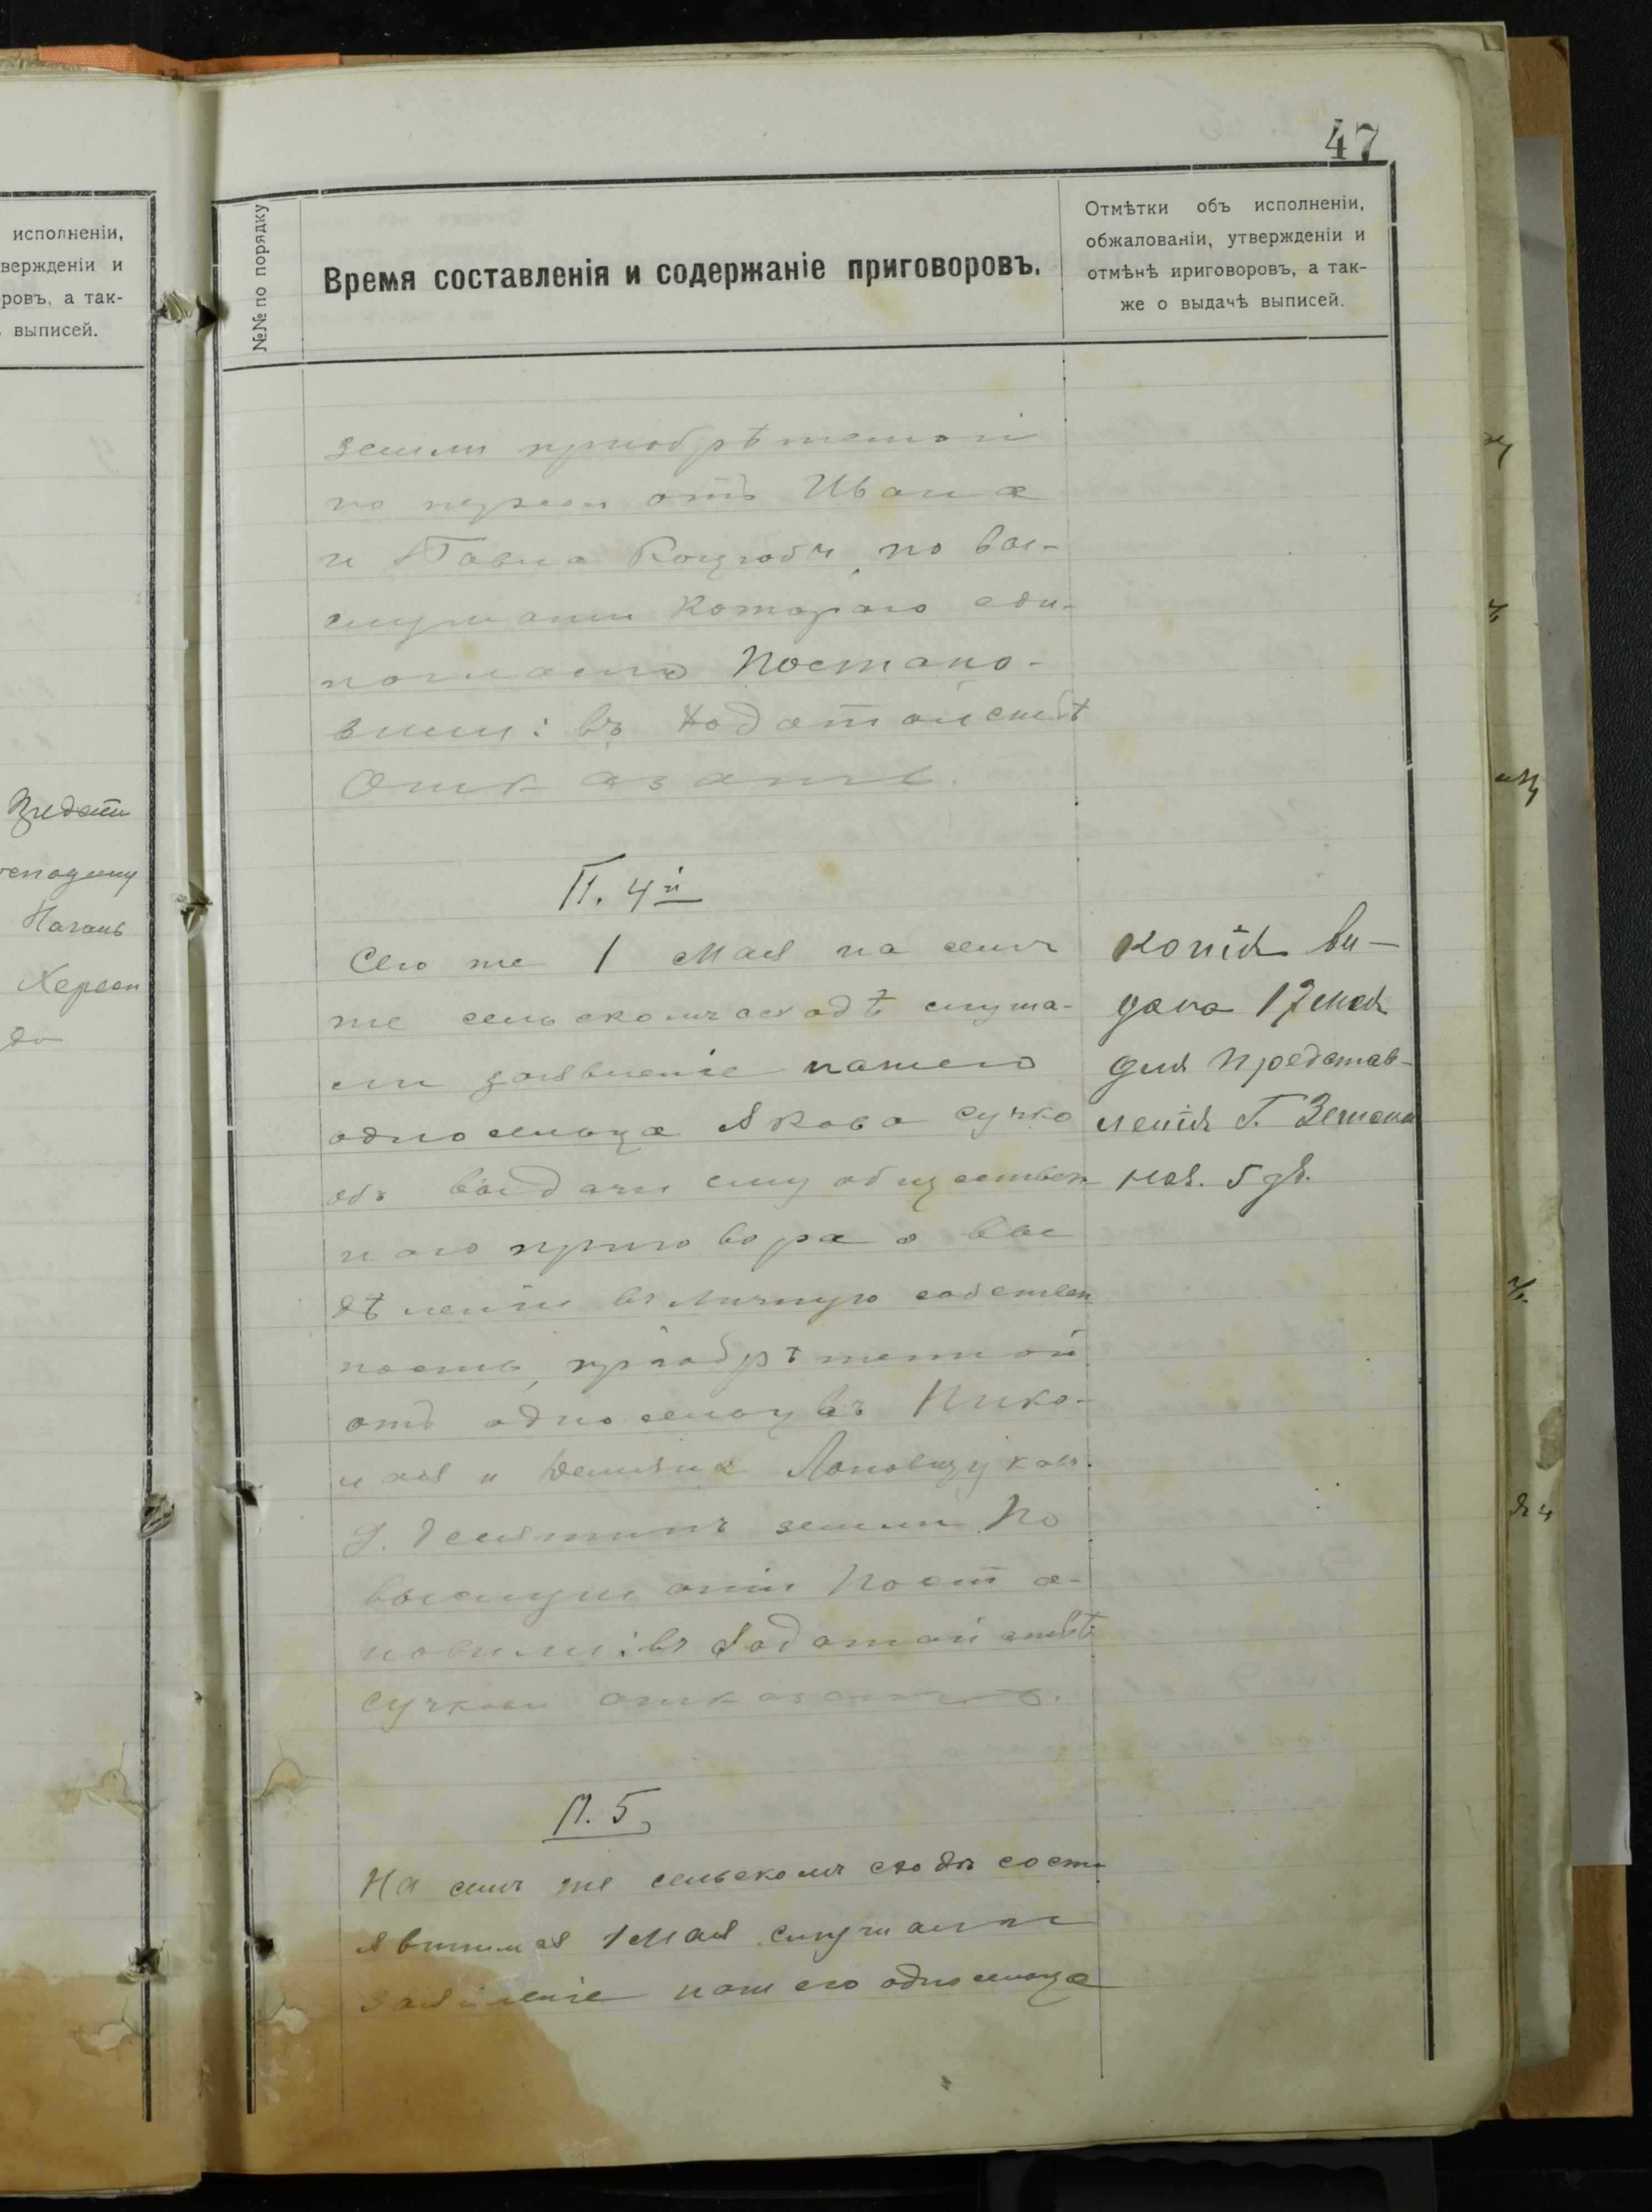 47
исполненіи,
вержденіи и
ровъ, а так-
выписей.
Херсон
№№ по порядку
Время составленія и содержаніе приговоровъ.
Отмѣтки объ исполненіи,
обжалованіи, утвержденіи и
отмѣнѣ приговоровъ, а так-
же о выдачѣ выписей.
земли приобрѣтеной
по отъ Ивана
и Павла по вы-
слушании Котораго еди-
ногласно Постано-
вили: въ ходатайствѣ
Отказать.
П. 4й
Сего же 1 Мая на семъ
же сельскомъ сходѣ слуша-
ли заявленіе нашего
односельца Якова Сучко
объ выдачи ему обществен
наго приговора о вы
дѣленіи въ личную собствен
ность, пріобрѣтенной
отъ односельцевъ Нико-
лая и Демяна
9. десятинъ земли По
выслушаніи Поста-
новили: въ ходатайствѣ
Сучкови отказать.
П. 5
На семъ же сельскомъ сходѣ состо
явшимся 1 Мая слушали
заявленіе нашего односельца
копія ви-
дана 17 мая
для Представ-
ленія Г. Земском
нач. 5 уч.